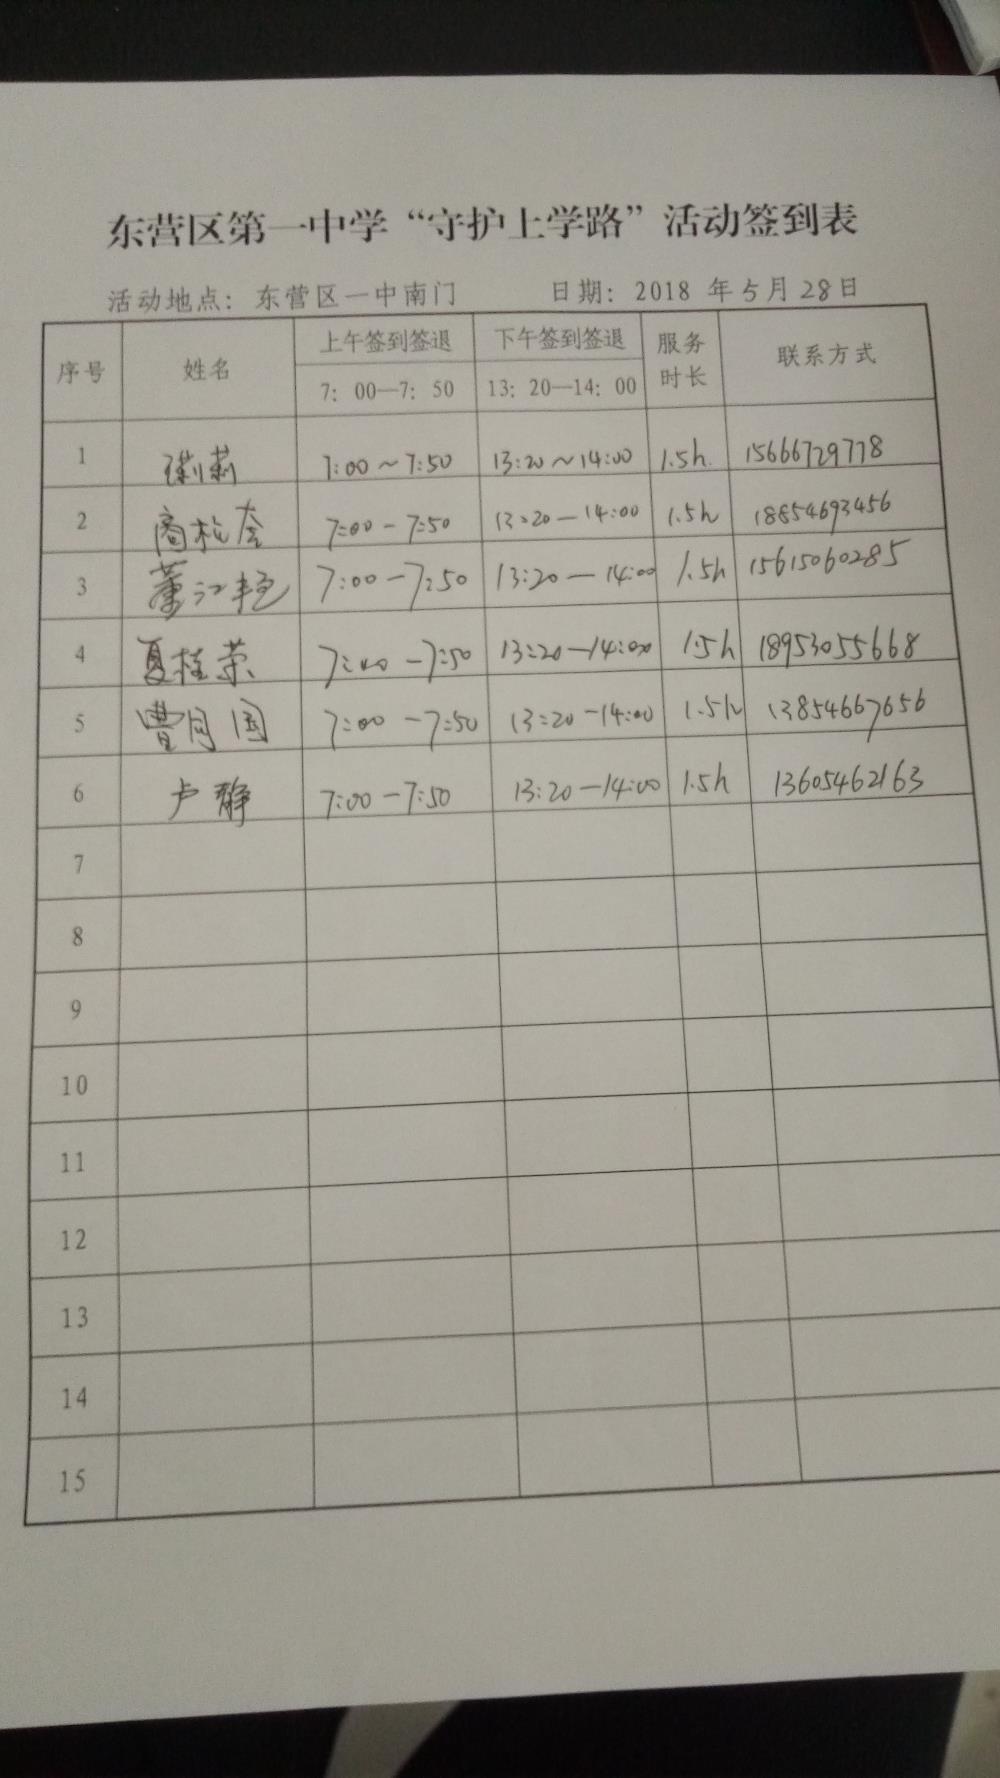 东营区第一中学“守护上学路”活动签到表
活动地点：东营区一中南门 日期：2018 年 5 月 28 日
序号 姓名 上午签到签退 下午签到签退 服务时长 联系方式
7：00—7：50 13：20—14：00
1 莉莉 7:00～7:50 13:20～14:00 1.5h. 15666729778
2 商松 7:00-7:50 13:20-14:00 1.5h 18854693456
3 董江艳 7:00-7:50 13:20-14:00 1.5h 15615060285
4 夏桂荣 7:00-7:50 13:20-14:00 1.5h 18953055668
5 曹同国 7:00-7:50 13:20-14:00 1.5h 13854667656
6 卢静 7:00-7:50 13:20-14:00 1.5h 13605462163
7
8
9
10
11
12
13
14
15